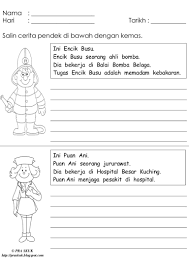 Nama :
Hari : Tarikh :
Salin cerita pendek di bawah dengan kemas.
Ini Encik Busu.
Encik Busu seorang ahli bomba.
Dia bekerja di Balai Bomba Belaga.
Tugas Encik Busu adalah memadam kebakaran.
Ini Puan Ani.
Puan Ani seorang jururawat.
Dia bekerja di Hospital Besar Kuching.
Puan Ani menjaga pesakit di hospital.
© PRA SEUK
http://praseuk.blogspot.com